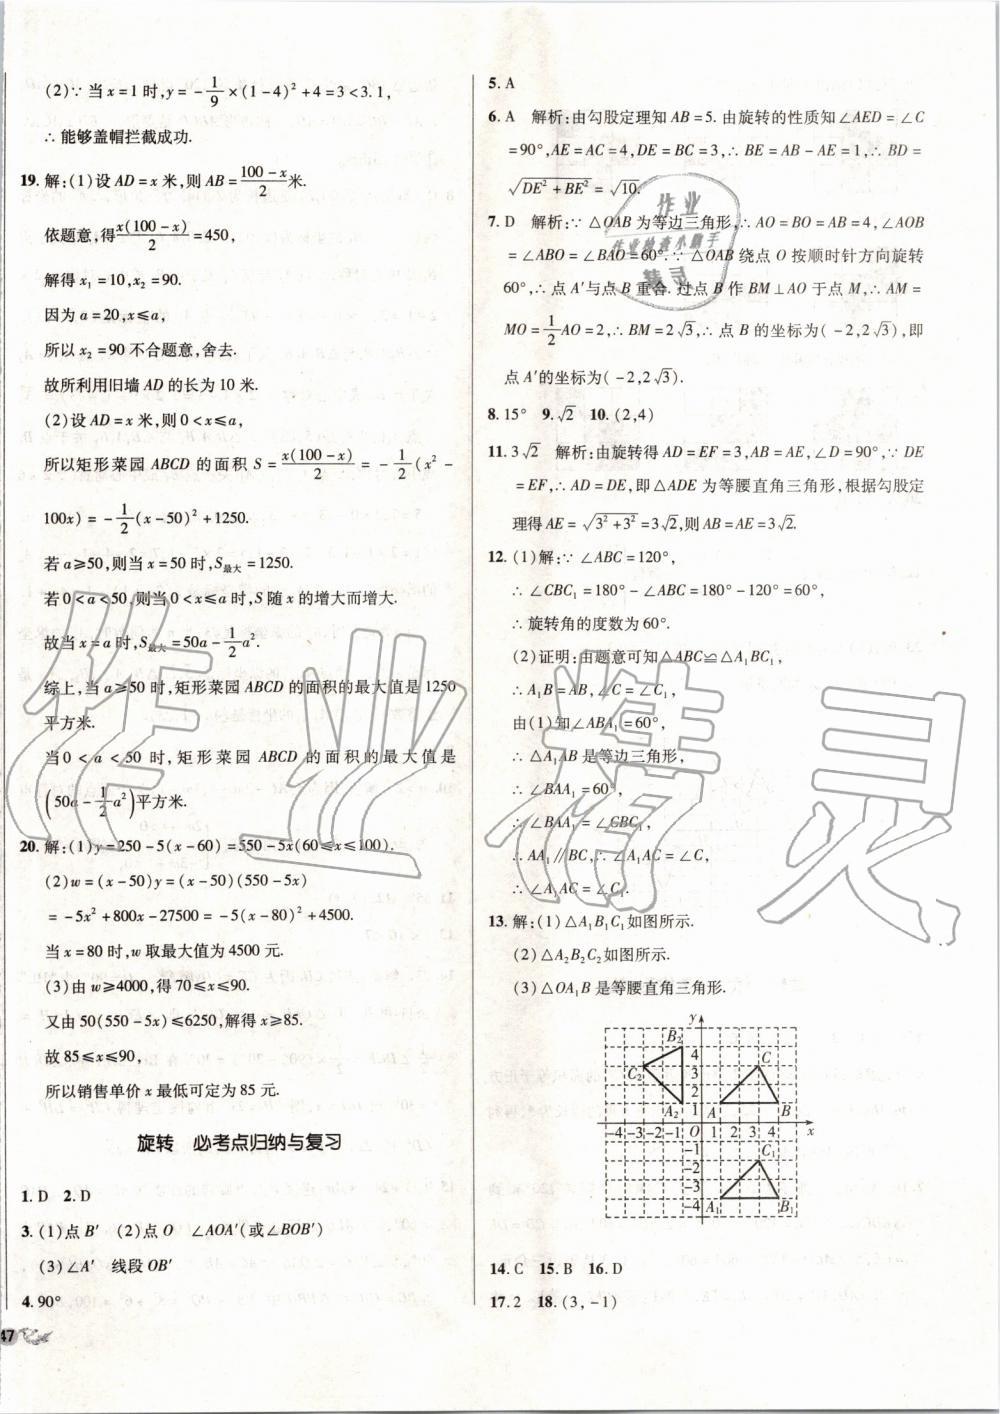 (2)∵当x=1时,y=-1/9×(1-4)²+4=3<3.1,
∴能够盖帽拦截成功.
19.解:(1)设AD=x米,则AB=(100-x)/2米.
依题意,得x(100-x)/2=450,
解得x₁=10,x₂=90.
因为a=20,x≤a,
所以x₂=90不合题意,舍去.
故所利用旧墙AD的长为10米.
(2)设AD=x米,则0<x≤a,
所以矩形菜园ABCD的面积S=x(100-x)/2=-1/2(x²-
100x)=-1/2(x-50)²+1250.
若a≥50,则当x=50时,S最大=1250.
若0<a<50,则当0<x≤a时,S随x的增大而增大.
故当x=a时,S最大=50a-1/2a².
综上,当a≥50时,矩形菜园ABCD的面积的最大值是1250
平方米.
当0<a<50时,矩形菜园ABCD的面积的最大值是
(50a-1/2a²)平方米.
20.解:(1)y=250-5(x-60)=550-5x(60≤x≤100).
(2)w=(x-50)y=(x-50)(550-5x)
=-5x²+800x-27500=-5(x-80)²+4500.
当x=80时,w取最大值为4500元.
(3)由w≥4000,得70≤x≤90.
又由50(550-5x)≤6250,解得x≥85.
故85≤x≤90,
所以销售单价x最低可定为85元.
旋转 必考点归纳与复习
1.D 2.D
3.(1)点B′ (2)点O ∠AOA′(或∠BOB′)
(3)∠A′ 线段OB′
4.90°
47
5.A
6.A 解析:由勾股定理知AB=5.由旋转的性质知∠AED=∠C
=90°,AE=AC=4,DE=BC=3,∴BE=AB-AE=1,∴BD=
√(DE²+BE²)=√10.
7.D 解析:∵△OAB为等边三角形,∴AO=BO=AB=4,∠AOB
=∠ABO=∠BAO=60°.∵△OAB绕点O按顺时针方向旋转
60°,∴点A′与点B重合.过点B作BM⊥AO于点M,∴AM=
MO=1/2AO=2,∴BM=2√3,∴点B的坐标为(-2,2√3),即
点A′的坐标为(-2,2√3).
8.15° 9.√2 10.(2,4)
11.3√2 解析:由旋转得AD=EF=3,AB=AE,∠D=90°.∵DE
=EF,∴AD=DE,即△ADE为等腰直角三角形,根据勾股定
理得AE=√(3²+3²)=3√2,则AB=AE=3√2.
12.(1)解:∵∠ABC=120°,
∴∠CBC₁=180°-∠ABC=180°-120°=60°,
∴旋转角的度数为60°.
(2)证明:由题意可知△ABC≌△A₁BC₁,
∴A₁B=AB,∠C=∠C₁.
由(1)知∠ABA₁=60°,
∴△A₁AB是等边三角形,
∴∠BAA₁=60°,
∴∠BAA₁=∠CBC₁,
∴AA₁∥BC,∴∠A₁AC=∠C,
∴∠A₁AC=∠C₁.
13.解:(1)△A₁B₁C₁如图所示.
(2)△A₂B₂C₂如图所示.
(3)△OA₁B是等腰直角三角形.
y
B₂
4
C
C₂ 3
2
A₂ 1 A B
-4 -3 -2 -1 O 1 2 3 4 x
-1
C₁
-2
-3
-4 A₁ B₁
14.C 15.B 16.D
17.2 18.(3,-1)
作业
作业检查小帮手
精灵
作业精灵